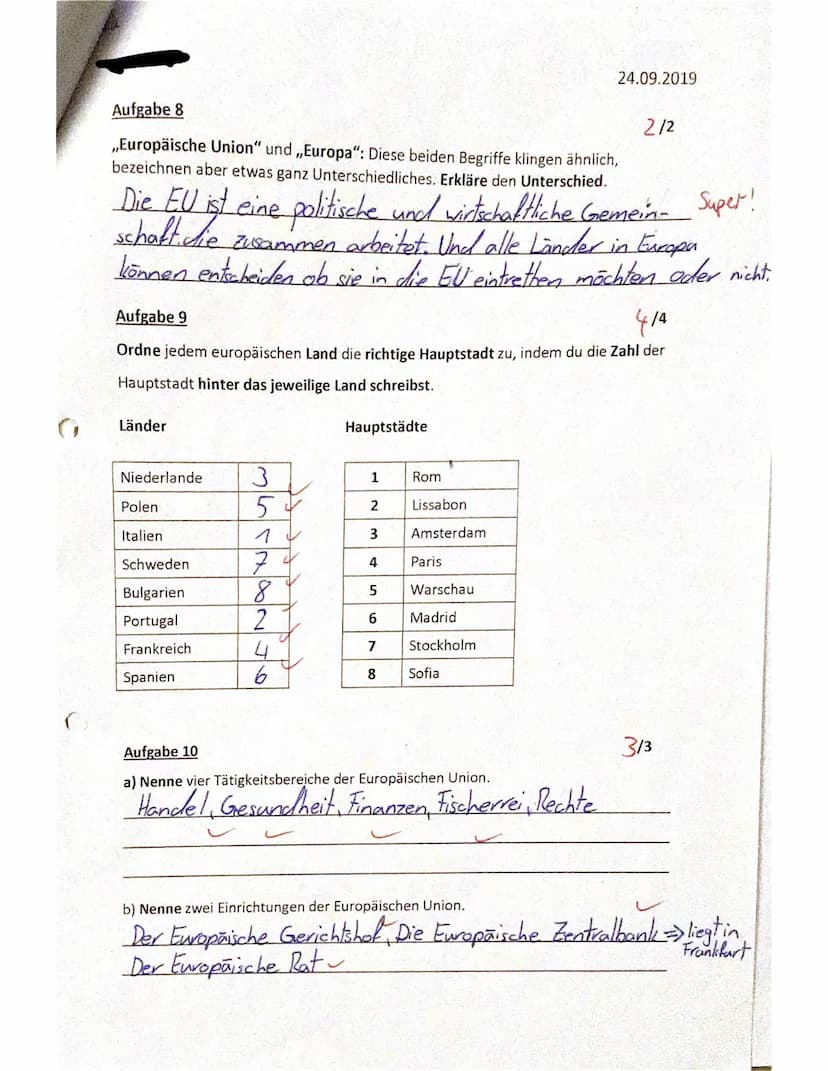 24.09.2019
Aufgabe 8
2/2
„Europäische Union“ und „Europa“: Diese beiden Begriffe klingen ähnlich,
bezeichnen aber etwas ganz Unterschiedliches. Erkläre den Unterschied.
Die EU ist eine politische und wirtschaftliche Gemein- Super!
schaft. die zusammen arbeitet. Und alle Länder in Europa
können entscheiden ob sie in die EU eintrethen möchten oder nicht.
Aufgabe 9
4/4
Ordne jedem europäischen Land die richtige Hauptstadt zu, indem du die Zahl der
Hauptstadt hinter das jeweilige Land schreibst.
Länder Hauptstädte
Niederlande 3 1 Rom
Polen 5 2 Lissabon
Italien 1 3 Amsterdam
Schweden 7 4 Paris
Bulgarien 8 5 Warschau
Portugal 2 6 Madrid
Frankreich 4 7 Stockholm
Spanien 6 8 Sofia
Aufgabe 10
3/3
a) Nenne vier Tätigkeitsbereiche der Europäischen Union.
Handel, Gesundheit, Finanzen, Fischerrei, Rechte
b) Nenne zwei Einrichtungen der Europäischen Union.
Der Europäische Gerichtshof, Die Europäische Zentralbank => liegt in
Frankfurt
Der Europäische Rat